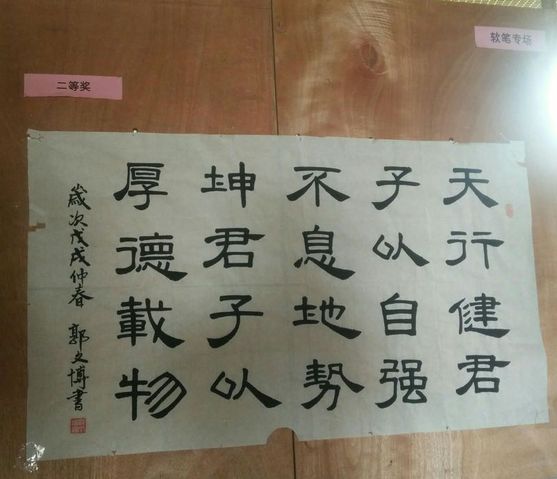 软笔专场
二等奖
天行健君
子以自强
不息地势
坤君子以
厚德載物
歲次戊戌仲春 郭文博書